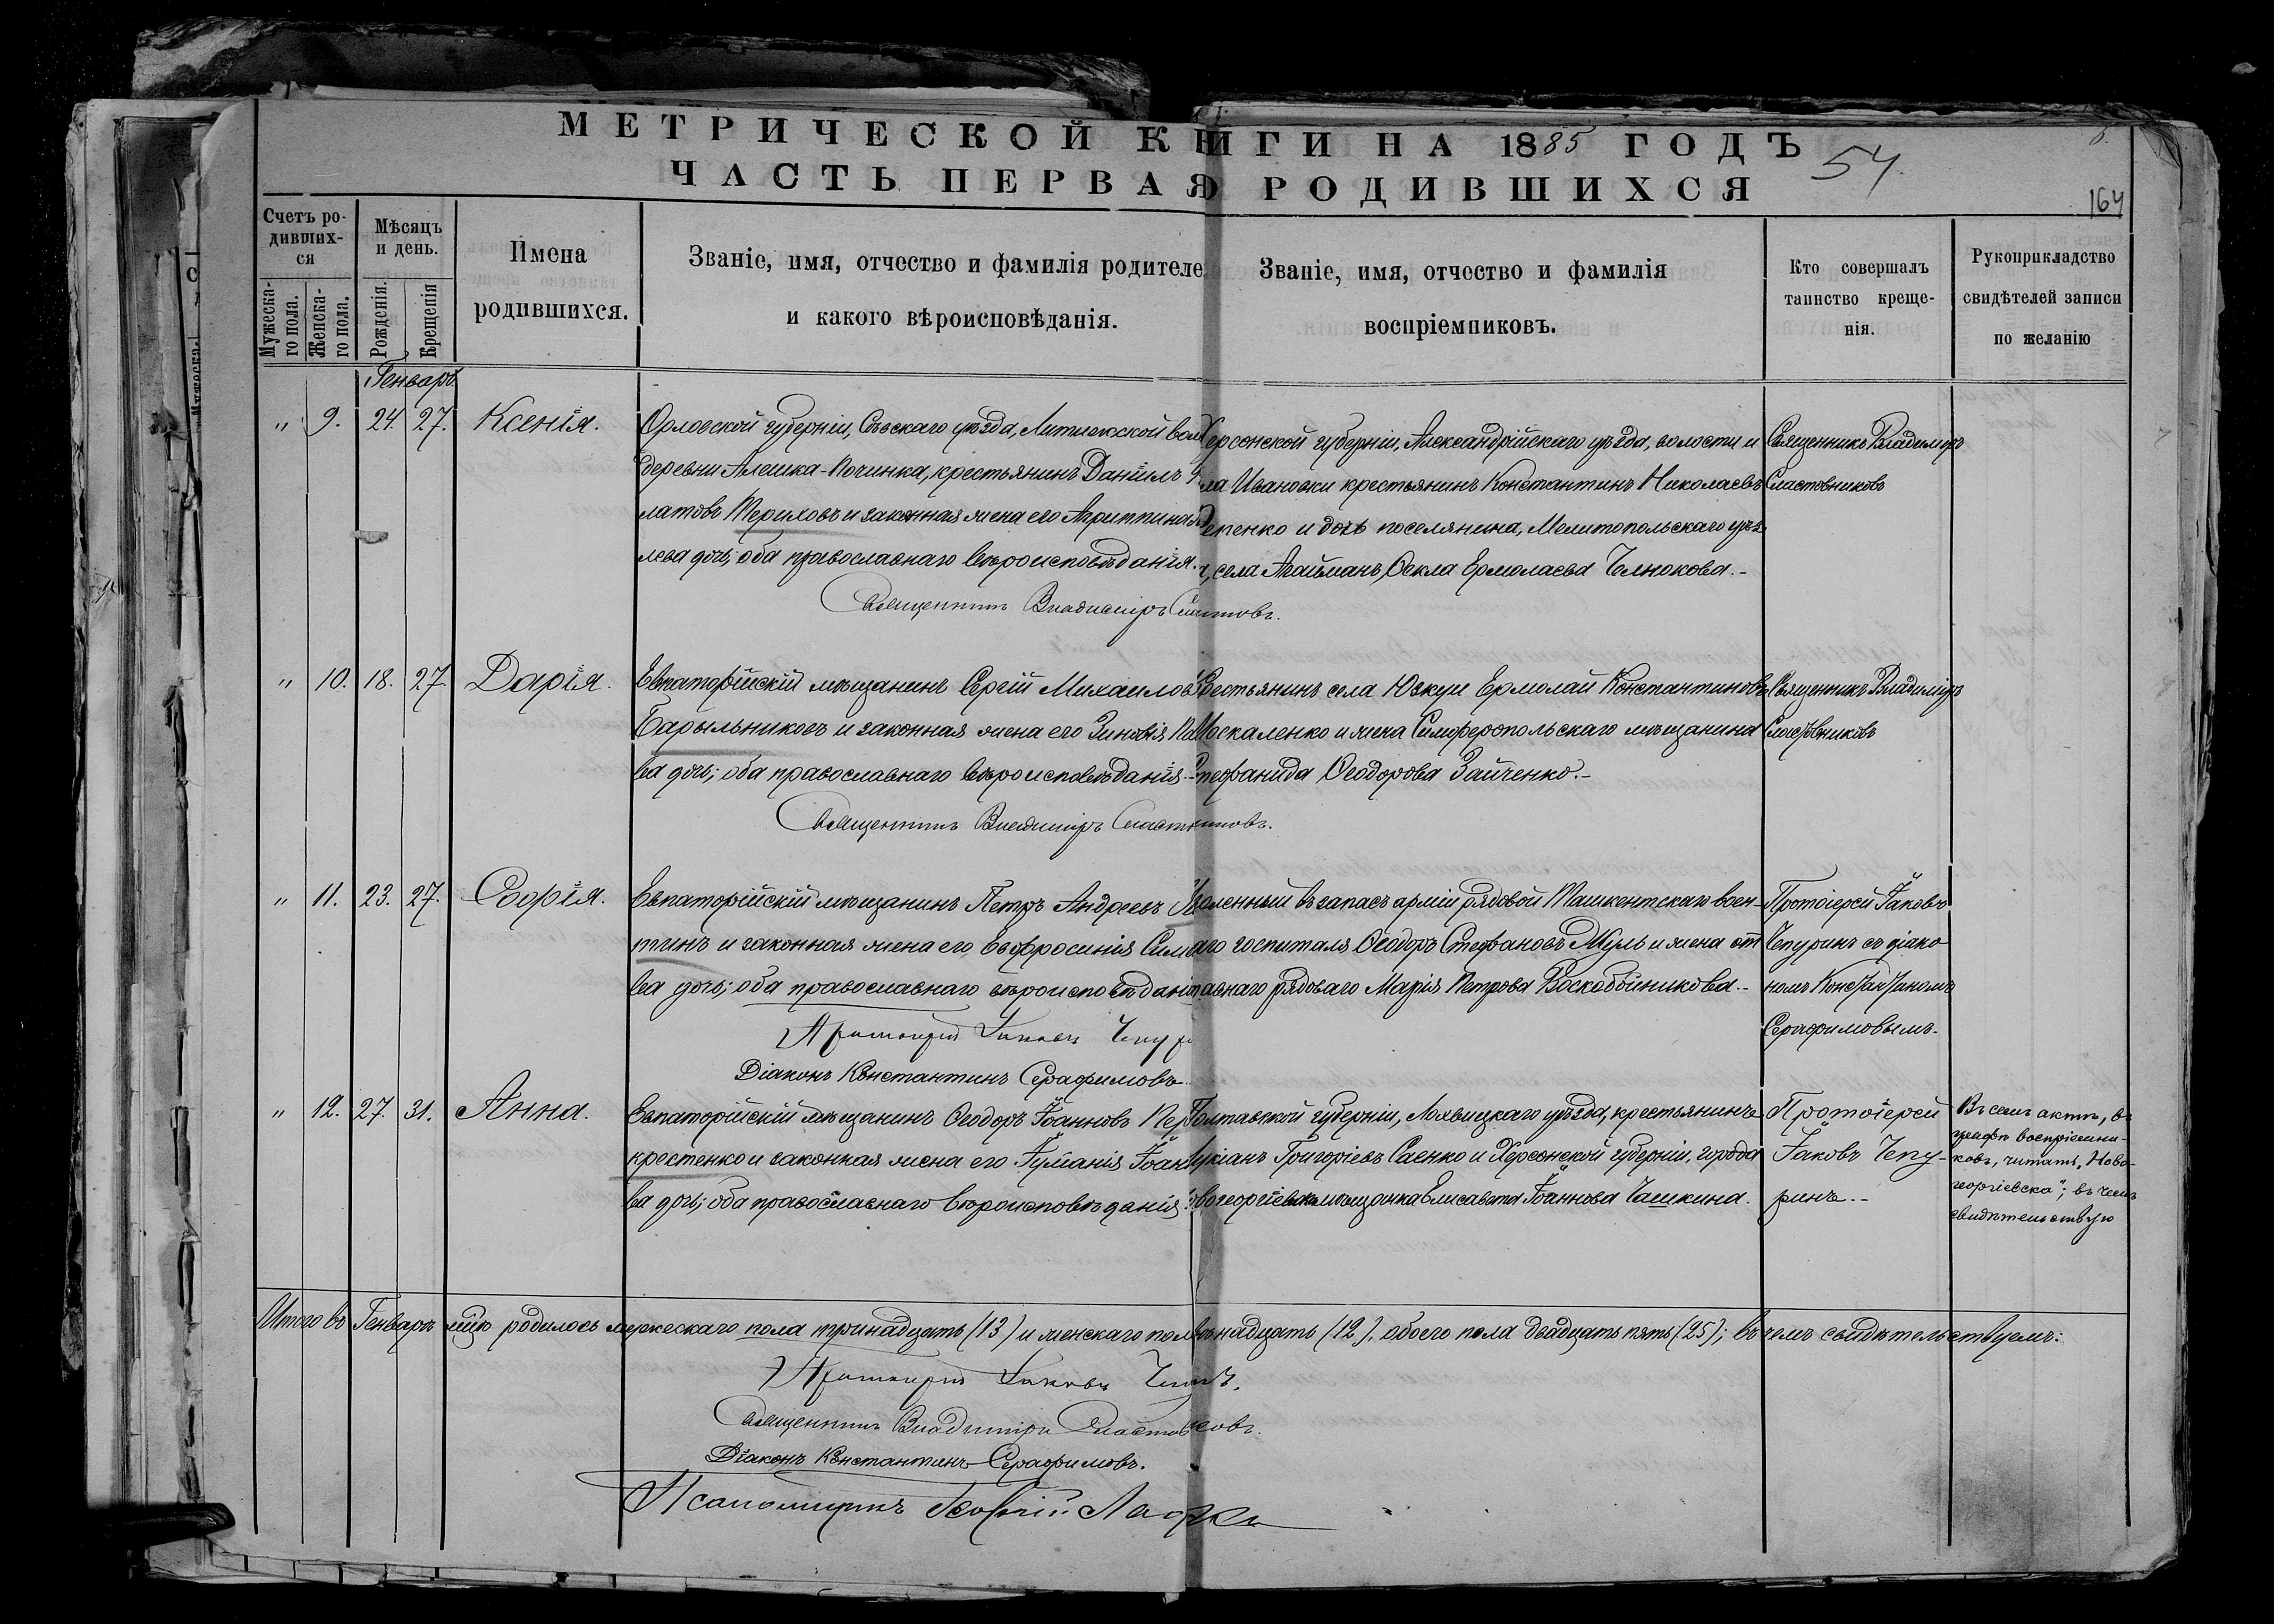 МЕТРИЧЕСКОЙ КНИГИ НА 1885 ГОДЪ
54.
ЧАСТЬ ПЕРВАЯ РОДИВШИХСЯ
164
Счетъ ро-
дивших-
ся
Мужеска-
го пола.
Женска-
го пола.
Мѣсяцъ
и день.
Рожденія.
Крещенія
Имена
родившихся.
Званіе, имя, отчество и фамилія родителе
и какого вѣроисповѣданія.
Званіе, имя, отчество и фамилія
воспріемниковъ.
Кто совершалъ
таинство креще-
нія.
Рукоприкладство
свидѣтелей записи
по желанію
Генварь
" 9. 24. 27. Ксенія.
Орловской губерніи, Сѣвскаго уѣзда, Литижской вол
деревни Алешка-Починка, крестьянинъ Даніилъ
латовъ Териховъ и законная жена его Агриппина
лева дочь; оба православнаго вѣроисповѣданія.
Священникъ Владиміръ
Херсонской губерніи, Александрійскаго уѣзда, волости и
ла Ивановки крестьянинъ Константинъ Николаевъ
депенко и дочь поселянина, Мелитопольскаго уѣз
села Агайманъ, Ѳекла Ермолаева Челнокова.-
Священникъ Владиміръ
Сластовниковъ
" 10. 18. 27. Дарія.
Евпаторійскій мѣщанинъ Сергій Михаиловъ
Барыльниковъ и законная жена его Зиновія
ва дочь; оба православнаго вѣроисповѣданія.-
Священникъ Владиміръ
Крестьянинъ села Юзкуи Ермолай Константиновъ
Москаленко и жена Симферопольскаго мѣщанина
Стефанида Ѳеодорова Зайченко.-
Священникъ Владиміръ
" 11. 23. 27. Софія.
Евпаторійскій мѣщанинъ Петръ Андреевъ
тинъ и законная жена его Евфросинія
ва дочь; оба православнаго вѣроисповѣданія
Протоіерей Іаковъ
Діаконъ Константинъ Серафимовъ
Уволенный въ запасъ арміи рядовой Ташкентскаго воен-
наго госпиталя Ѳеодоръ Стефановъ Муль и жена от
тавнаго рядоваго Марія Петрова Воскобойникова.-
Протоіерей Іаковъ
Чепуринъ съ діако
номъ Константиномъ
Серафимовымъ.
" 12. 27. 31. Анна.
Евпаторійскій мѣщанинъ Ѳеодоръ Іоанновъ Пере
крестенко и законная жена его Іуліанія Іоан
ва дочь; оба православнаго вѣроисповѣданія
Полтавской губерніи, Лохвицкаго уѣзда, крестьянинъ
Лукіанъ Григоріевъ Саенко и Херсонской губерніи, города
вогеоргіевска мѣщанка Елисавета Іоаннова Чашкина.
Протоіерей
Іаковъ Чепу-
ринъ.-
Въ семъ актѣ, въ
графѣ воспріемни-
ковъ, читать, "Ново-
георгіевска"; въ чемъ
свидѣтельствую
Итого въ Генварѣ мцѣ родилось мужескаго пола тринадцать (13) и женскаго пола двѣнадцать (12), обоего пола двадцать пять (25); въ чемъ свидѣтельствуемъ:
Протоіерей Іаковъ
Священникъ Владиміръ
Діаконъ Константинъ Серафимовъ.
Псаломщикъ